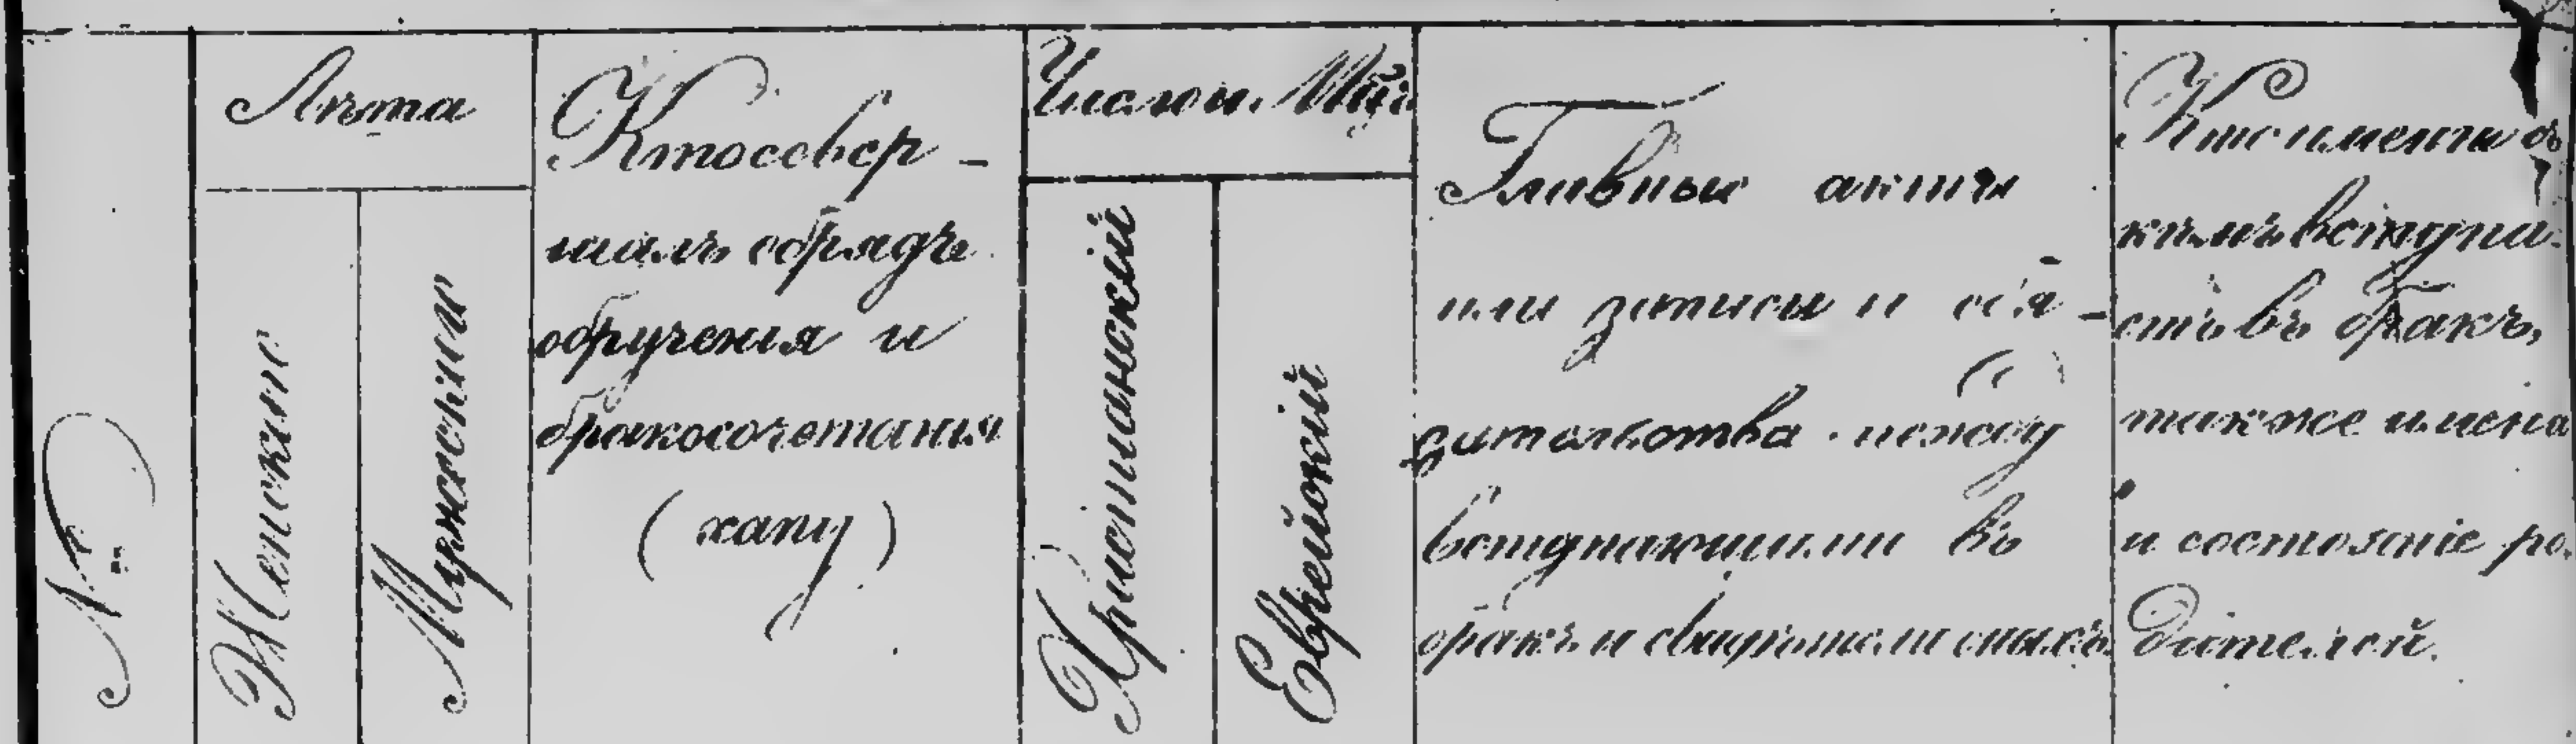 №
Лѣта
Женскіе
Мужескіе
Кто совер-
шалъ обрядъ
обрученія и
бракосочетанія
(хапу)
Число и
Христіанскій
Еврейскій
Главные акты
или записи и обя-
зательства между
вступающими въ
бракъ и свидѣтели оныхъ
Кто именно съ
кѣмъ вступа-
етъ въ бракъ,
также имена
и состояніе ро-
дителей.